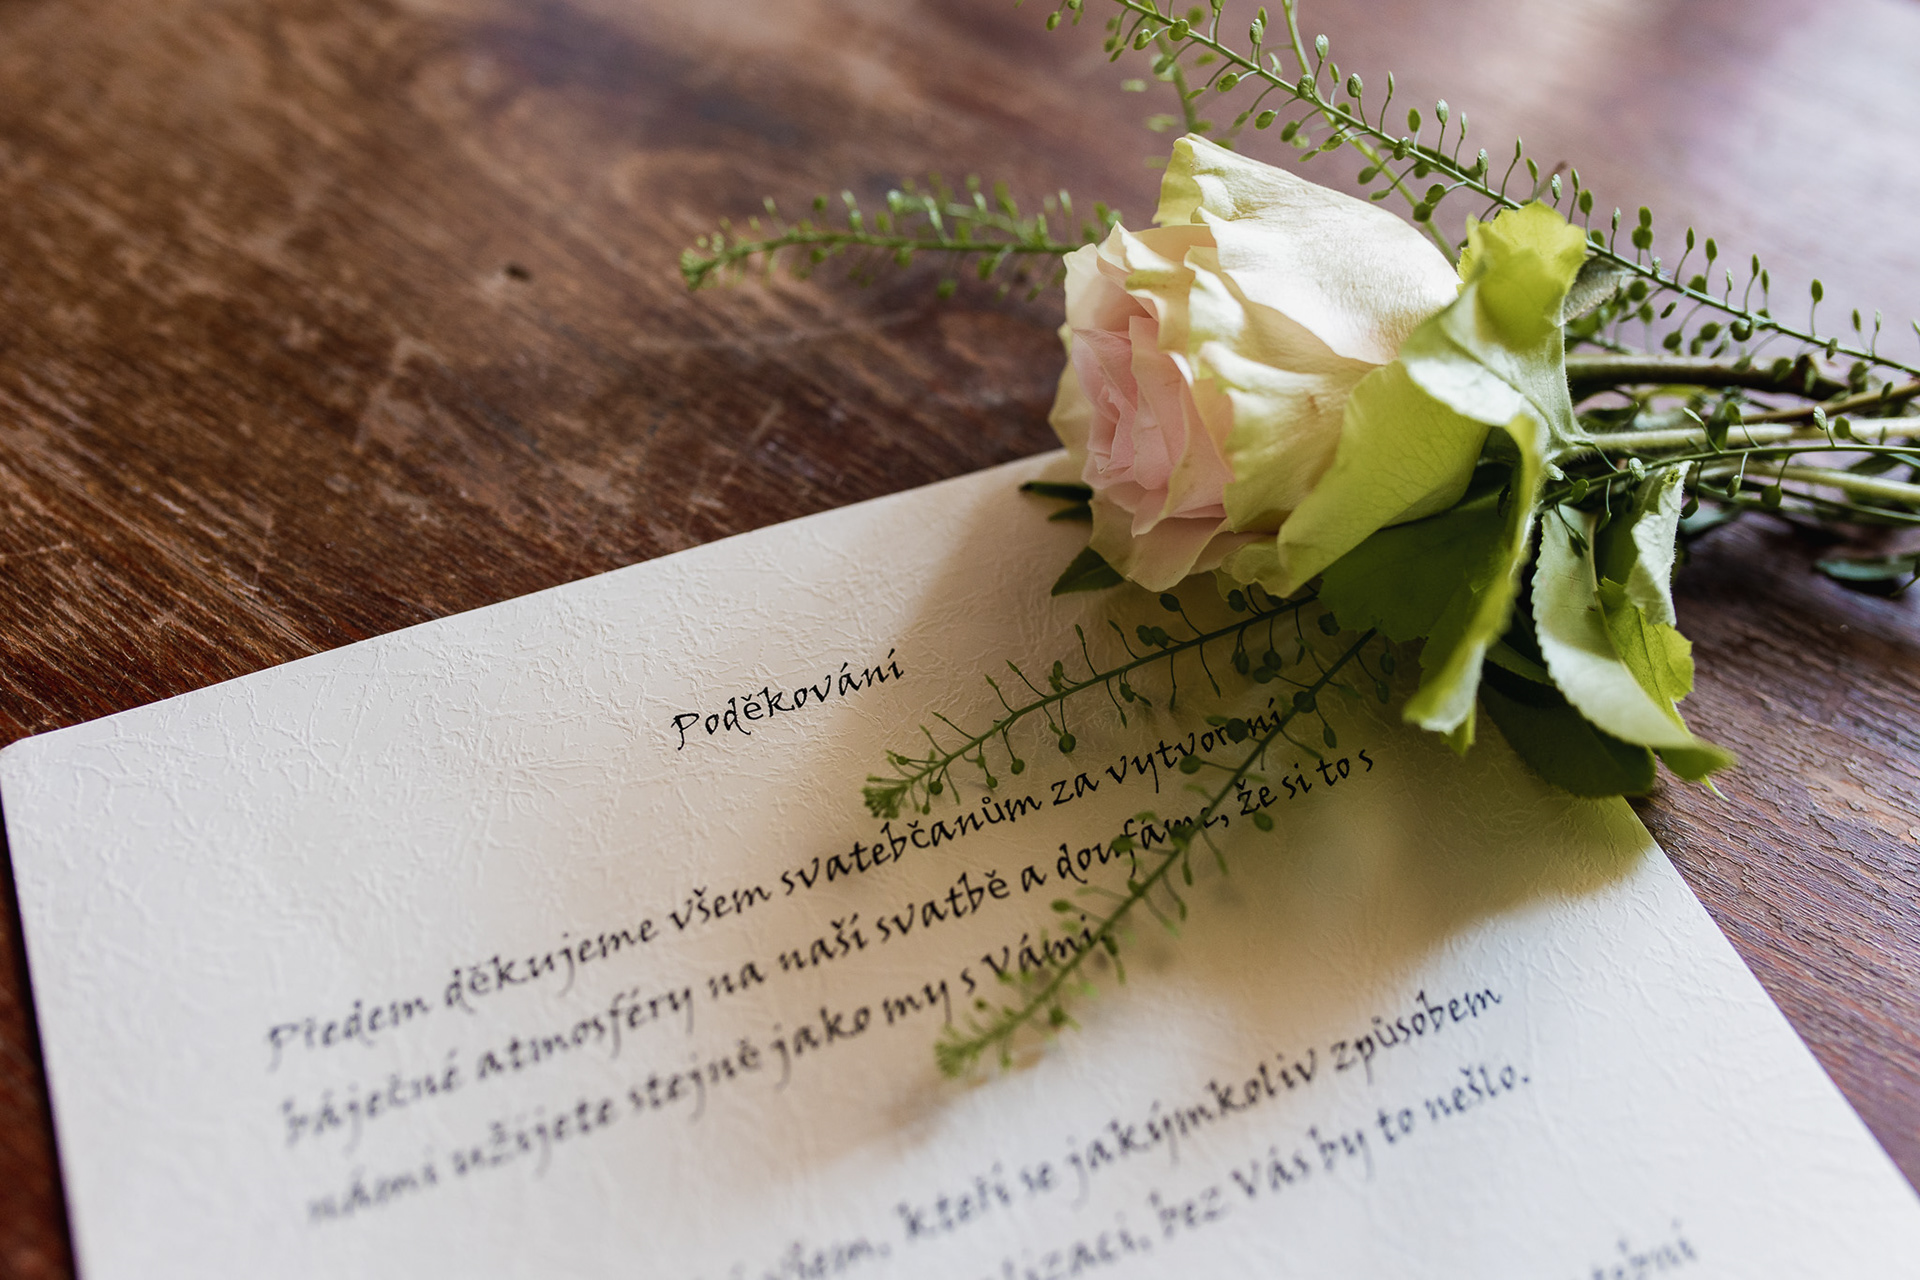 Poděkování
Předem děkujeme všem svatebčanům za vytvoření
báječné atmosféry na naší svatbě a doufáme, že si to s
námi užijete stejně jako my s Vámi.
všem, kteří se jakýmkoliv způsobem
bez Vás by to nešlo.